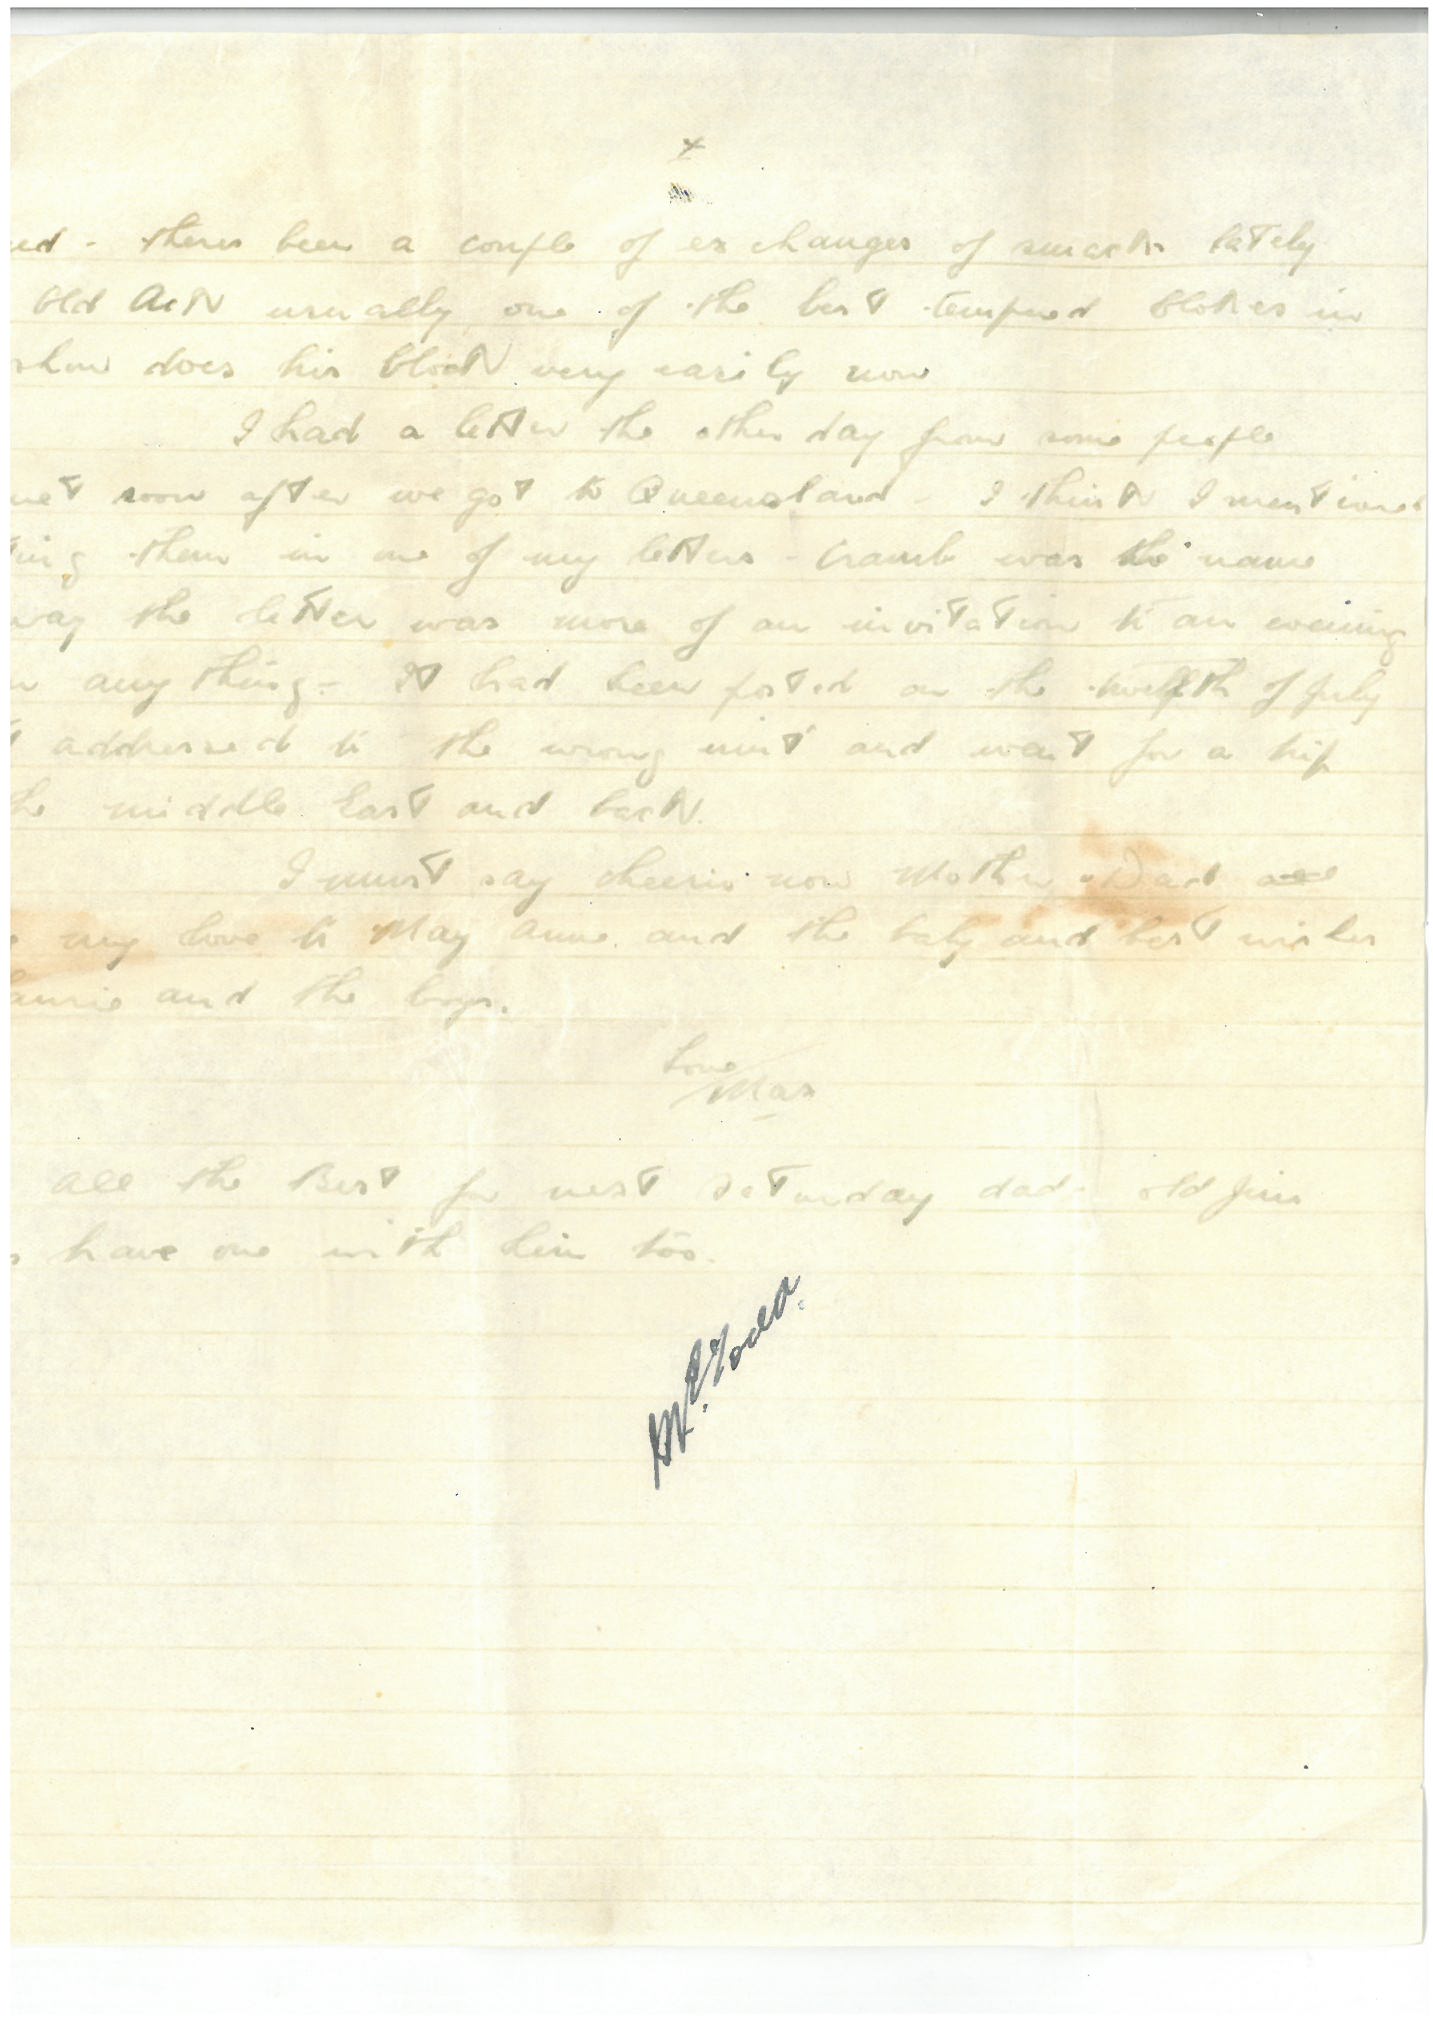 - theres been a couple of exchanges of smacks lately
old usually one of the best tempered blokes in
show does his block very easily now
I had a letter the other day from some people
met soon after we got to Queensland - I think I mentioned
them in one of my letters - was the name
way the letter was more of an invitation to an evening
anything - It had been posted on the twelfth of July
addressed to the wrong unit and went for a trip
the middle East and back.
I must say cheerio now Mother & Dad
my love to May Anne and the baby and best wishes
and the boys.
Love
Max
all the Best for next Saturday dad - old Jim
have one with him too.